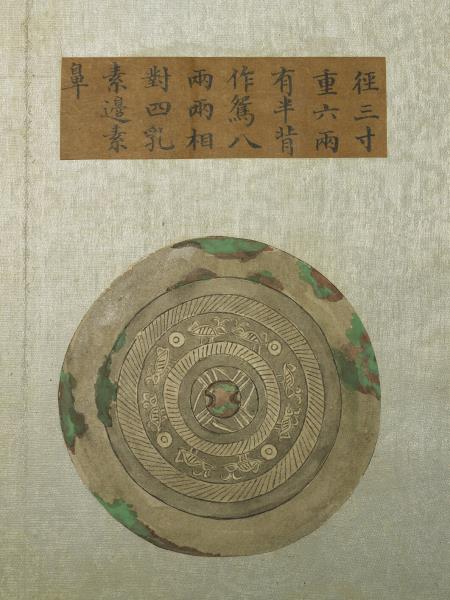 徑三寸
重六兩
有半背
作鴛八
兩兩相
對四乳
素邊素
鼻